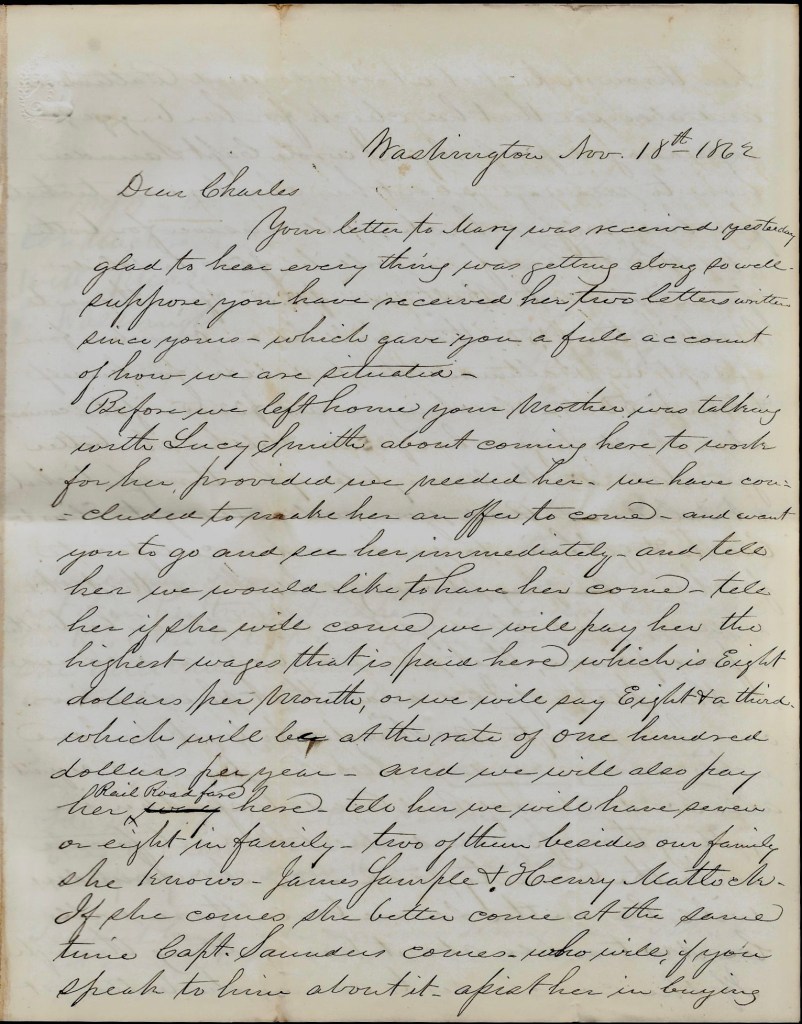 Washington Nov. 18th 1862
Dear Charles
Your letter to Mary was received yesterday
glad to hear every thing was getting along so well-
suppose you have received her two letters written
since yours - which gave you a full account
of how we are situated -
Before we left home your Mother was talking
with Lucy Smith about coming here to work
for her, provided we needed her - we have con=
=cluded to make her an offer to come - and want
you to go and see her immediately - and tell
her we would like to have her come - tell
her if she will come we will pay her the
highest wages that is paid here which is Eight
dollars per Month, or we will say Eight & a third -
which will be at the rate of One hundred
dollars per year - and we will also pay
her Rail Road fare here - tell her we will have seven
or eight in family - two of them besides our family
she knows - James Sample & Henry Matlock -
If she comes she better come at the same
time Capt. Saunders comes - who will, if you
speak to him about it - assist her in buying